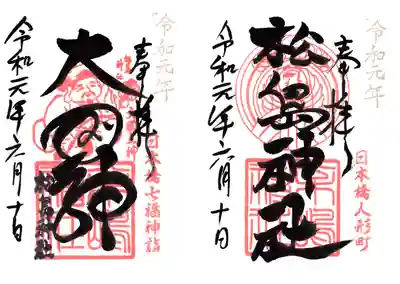 令和元年
奉拝
松島神社
日本橋人形町
令和元年六月十日
令和元年
奉拝
大国神
日本橋七福神詣
松島神社
令和元年六月十日